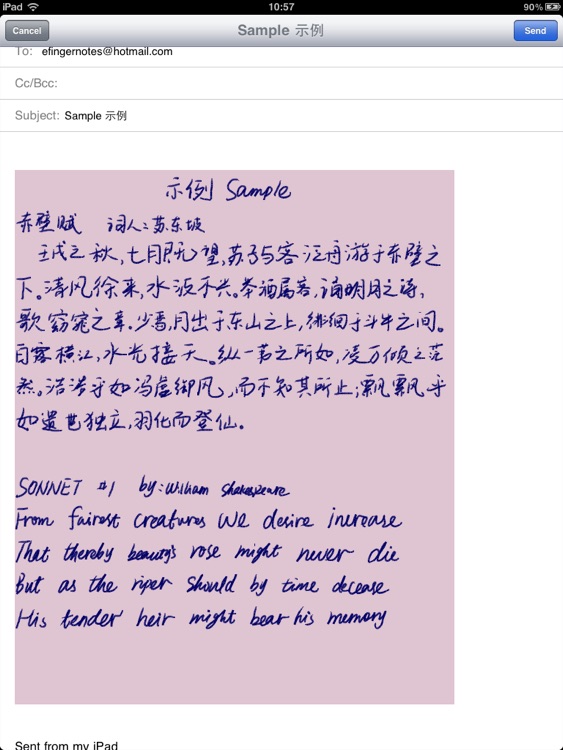 iPad 10:57 90%
Cancel Sample 示例 Send
To: efingernotes@hotmail.com
Cc/Bcc:
Subject: Sample 示例
示例 Sample
赤壁赋 词人:苏东坡
壬戌之秋,七月既望,苏子与客泛舟游于赤壁之
下。清风徐来,水波不兴。举酒属客,诵明月之诗,
歌窈窕之章。少焉,月出于东山之上,徘徊于斗牛之间。
白露横江,水光接天。纵一苇之所如,凌万顷之茫
然。浩浩乎如冯虚御风,而不知其所止;飘飘乎
如遗世独立,羽化而登仙。
SONNET #1 by: William Shakespeare
From fairest creatures we desire increase
That thereby beauty's rose might never die
But as the riper should by time decease
His tender heir might bear his memory
Sent from my iPad